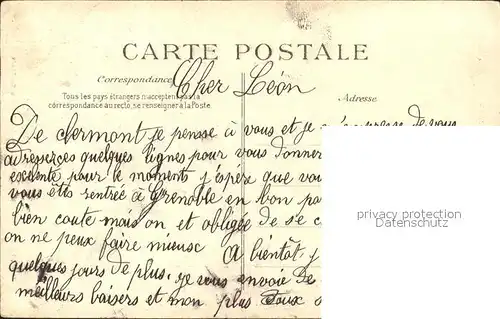 CARTE POSTALE
Correspondance
Cher Léon
Tous les pays étrangers n'acceptent pas la
correspondance au recto, se renseigner à la Poste.
Adresse
De clermont je pensse à vous et je de vous
adresserces quelques lignes pour vous donner
excelente pour le moments j'espère que vou
vous êtts rentrée à Grenoble en bon pa
bien coute mais on et obligée de se c
on ne peux faire mieusc A bientôt j
quelques jours de plus. je vous envoie De
meilleurs baisers et mon plus Doux
privacy protection
Datenschutz